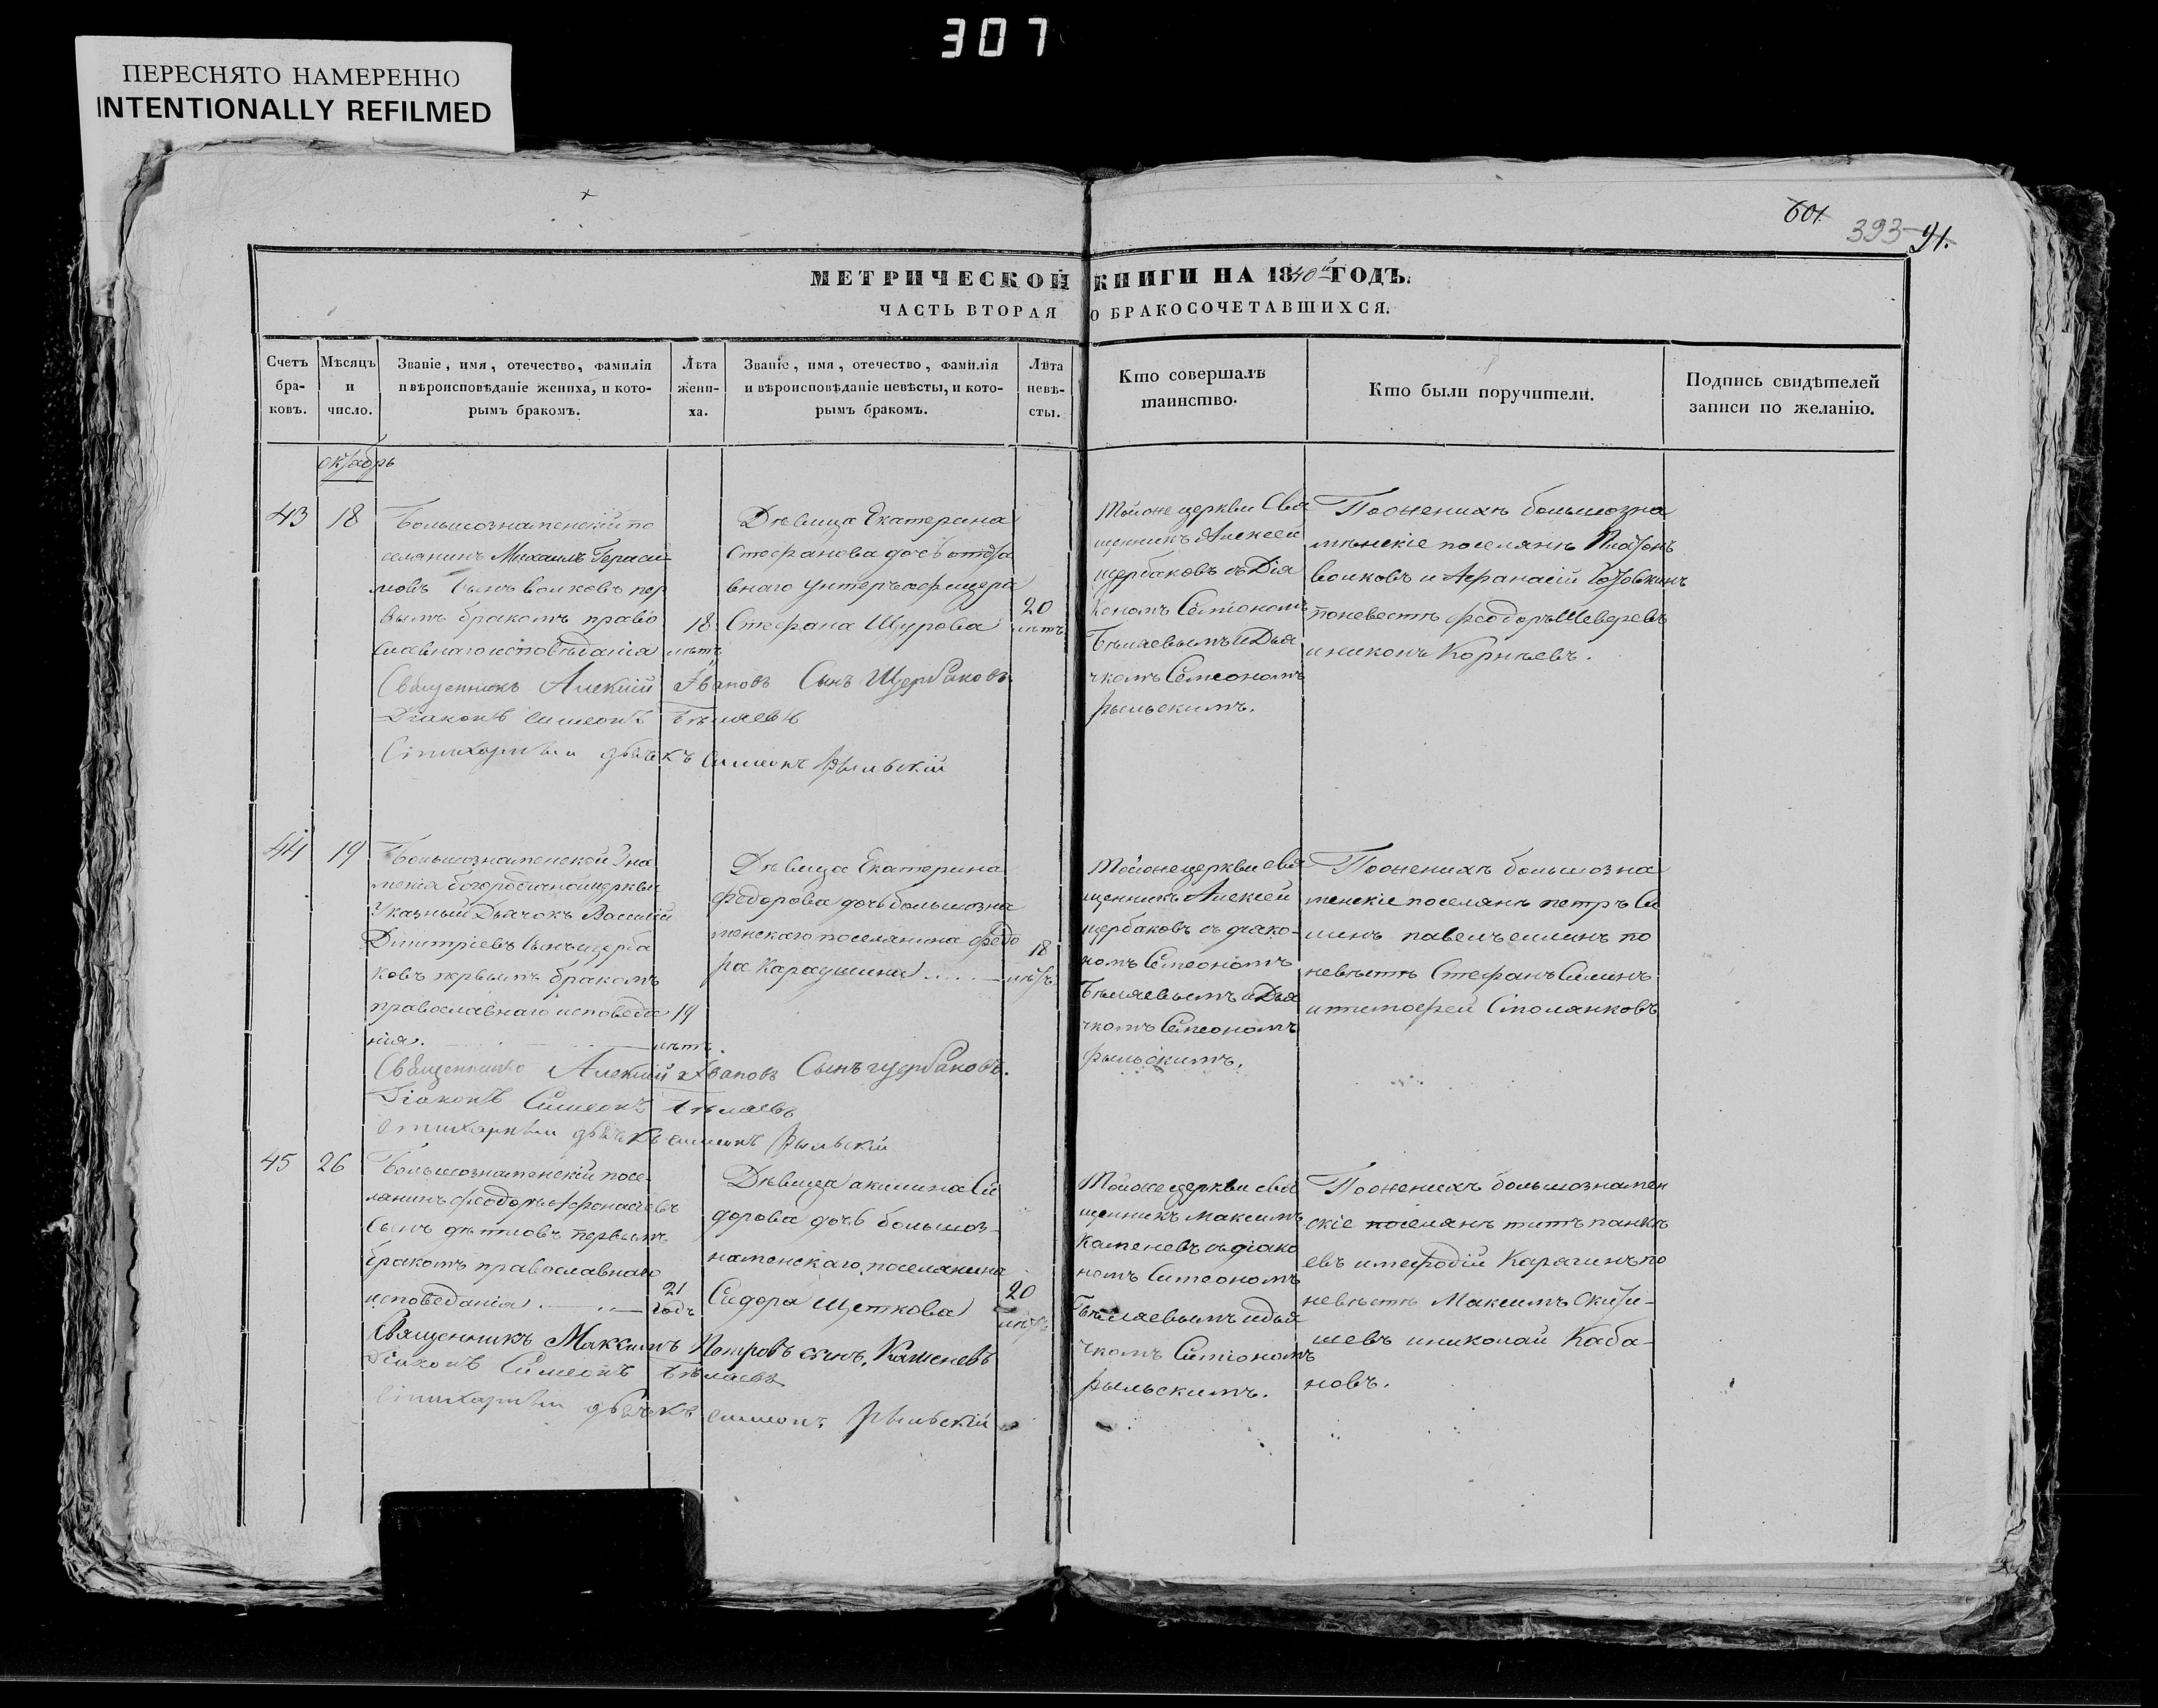 307
ПЕРЕСНЯТО НАМЕРЕННО
INTENTIONALLY REFILMED
601
393
91.
МЕТРИЧЕСКОЙ КНИГИ НА 1840й ГОДЪ.
ЧАСТЬ ВТОРАЯ О БРАКОСОЧЕТАВШИХСЯ.
Счетъ
бра-
ковъ.
Мѣсяцъ
и
число.
Званіе, имя, отечество, фамилія
и вѣроисповѣданіе жениха, и кото-
рымъ бракомъ.
Лѣта
жени-
ха.
Званіе, имя, отечество, фамилія
и вѣроисповѣданіе невѣсты, и кото-
рымъ бракомъ.
Лѣта
невѣ-
сты.
Кто совершалъ
таинство.
Кто были поручители.
Подпись свидѣтелей
записи по желанію.
октябрь
43
18
Большознаменскій по
селянинъ Михаилъ Гераси
мовъ сынъ волковъ пер
вымъ бракомъ право
славнаго исповѣданія
18
лѣтъ
Дѣвица Екатерина
Стефанова дочь отста
внаго унтеръ офицера
Стефана Щурова
20
лѣтъ
Тойже церкви Свя
щенникъ Алексей
щербаковъ съ Дія
кономъ Симіономъ
Бѣляевымъ и Дья
чкомъ Симеономъ
рыльскимъ.
Пожениxѣ большозна
менскіе поселянѣ Платонъ
волковъ и Афанасій
поневестѣ феодоръ Шеверевъ
и никонъ Корнѣевъ.
Священникъ Алексій Ивановъ Сынъ Щербаковъ
Діаконъ Симеонъ Бѣляевъ
Стихарный дьячекъ Симеонъ Рыльскій
44
19
Большознаменской Зна
менія богородичной церкви
Указный Дьячокъ Василій
Димитріевъ сынъ щерба
ковъ первымъ бракомъ
православнаго исповеда
нія.
19
лѣтъ.
Дѣвица Екатерина
Федорова дочь большозна
менскаго поселянина федо
ра
18
лѣтъ
Тойже церкви свя
щенникъ Алексей
щербаковъ съ діако-
номъ Симеономъ
Бѣляевымъ и Дья
чкомъ Симеономъ
рыльскимъ.
Поженихѣ большозна
менскіе поселянѣ петръ Си
линъ павелъ силинъ по
невѣстѣ Стефанъ Силинъ
и тимофей Столянковъ
Священникъ Алексій Ивановъ Сынъ щербаковъ.
Діаконъ Симеонъ Бѣляевъ
стихарный дьячекъ симеонъ Рыльскій
45
26
Большознаменскій посе-
лянинъ феодоръ Афонасіевъ
сынъ первымъ
бракомъ православнаго
исповеданія
21
годъ
Дѣвица акилина Си
дорова дочь большоз-
наменскаго поселянина
Сидора Щеткова
20
лѣтъ
Тойже церкви свя
щенникъ максимъ
Каменевъ съ діако
номъ Симеономъ
Бѣляевымъ и дья
чкомъ Симіономъ
рыльскимъ.
Поженихѣ большознамен
скіе поселянѣ титъ
евъ и мефодій Карагинъ по
невѣстѣ Максимъ
шевъ и николай Каба-
новъ.
Священникъ Максимъ Петровъ сынъ Каменевъ
Діаконъ Симеонъ Бѣляевъ
стихарный дьячекъ симеонъ Рыльскій